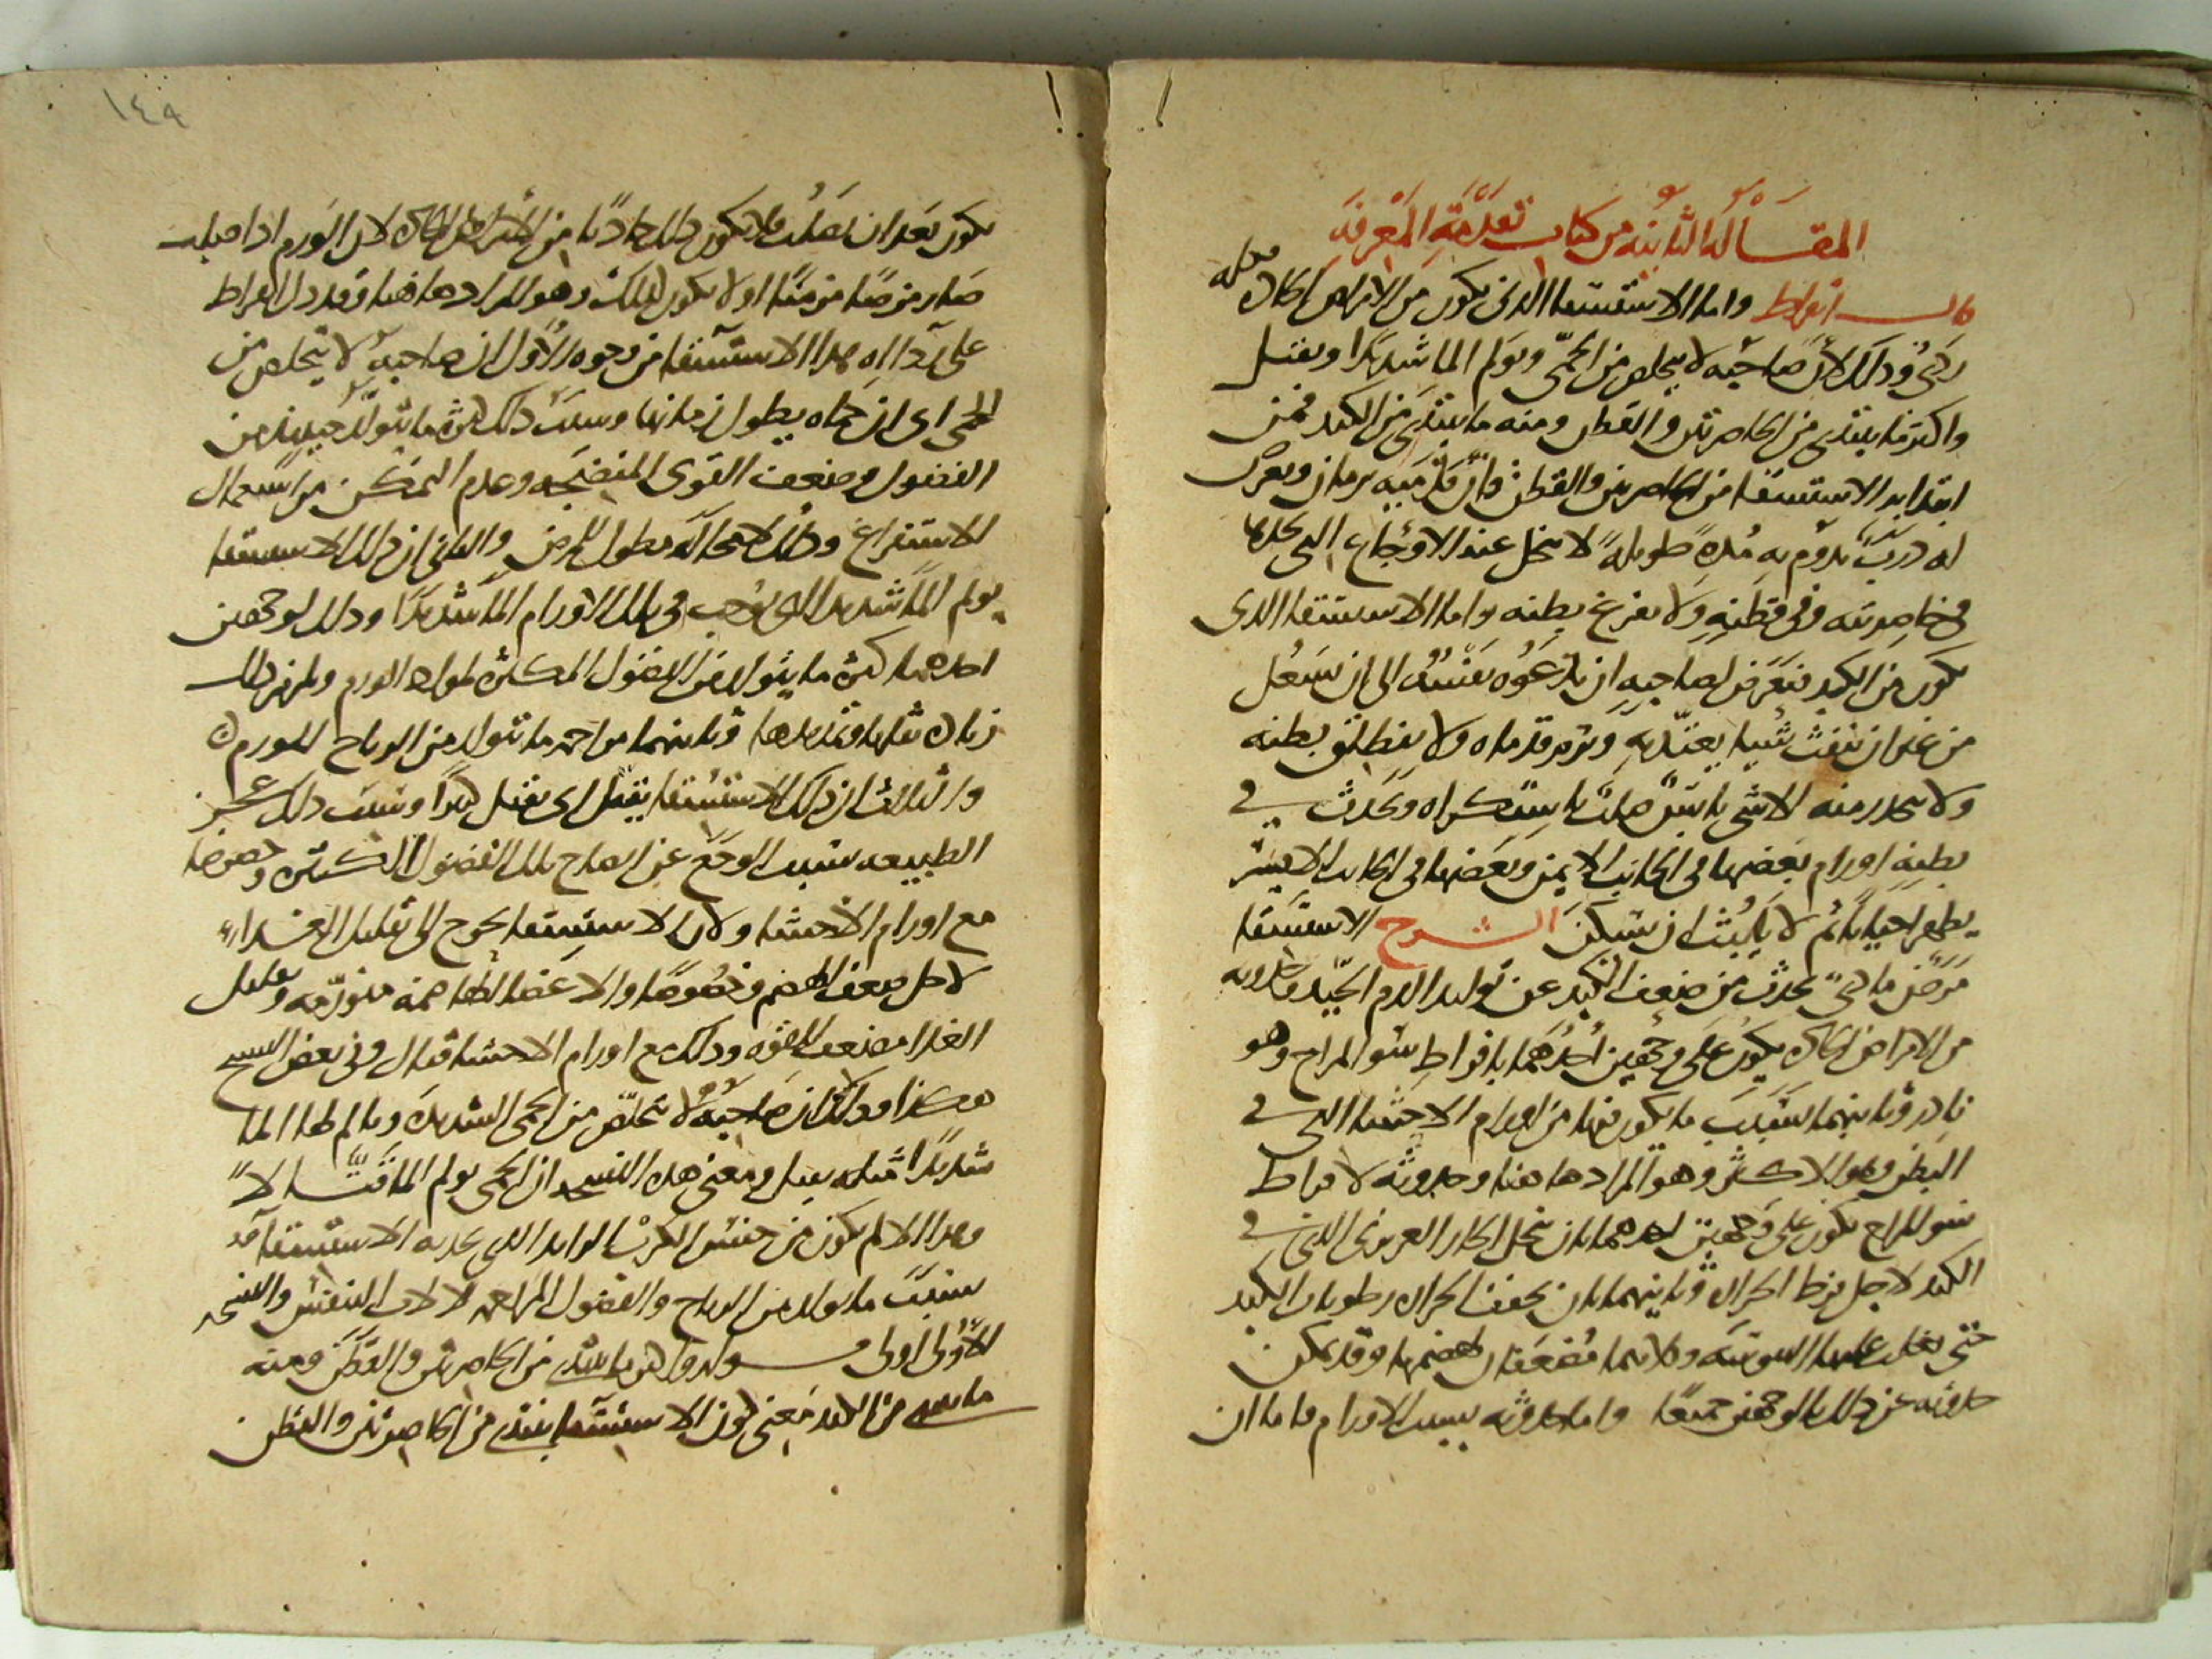 المقالة الثانية من كتاب تقدمة المعرفة
قال ابقراط واما الاستسقا الذى يكون من الامراض الحادة فكله
ردى وذلك لان صاحبه لا يتخلص من الحمى ويولم الما شديدا ويقتل
واكثر ما يبتدى من الخاصرتين والقطن ومنه ما يبتدى من الكبد فمن
ابتدا به الاستسقا من الخاصرتين والقطن فان قدميه يرمان ويعرض
له درب يدوم به مدة طويلة لا ينحل عنه الاوجاع التى يجدها
فى خاصرتيه وفى قطنه ولا يفرغ بطنه واما الاستسقا الذى
يكون من الكبد فيعرض لصاحبه ان تدعوه نفسه الى ان يسعل
من غير ان ينفث شيا يعتد به وترم قدماه ولا ينطلق بطنه
ولا ينحدر منه الا شى يابس صلب باستكراه ويحدث فى
بطنه اورام بعضها فى الجانب الايمن وبعضها فى الجانب الايسر
يظهر احيانا ثم لا يلبث ان يسكن الشرح الاستسقا
مرض مادى يحدث من ضعف الكبد عن توليد الدم الجيد وحدوثه
من الامراض الحادة يكون على وجهين احدهما بافراط سو المزاج وهو
نادر وثانيهما بسبب ما يكون فيها من اورام الاحشا التى فى
البطن وهو الاكثر وهو المراد هاهنا وحدوثه لافراط
سو المزاج يكون على وجهين احدهما بان ينحل الحار الغريزى الذى فى
الكبد لاجل فرط الحرارة وثانيهما بان يجفف الحرارة رطوبات الكبد
حتى يغلب عليها اليبوسة وكلاهما مضعفان لهضمها وقد يمكن
حدوثه عن ذلك بالوجهين جميعا واما حدوثه بسبب الاورام فاما ان
١٤٩
يكون بعد ان تصلب فلا يكون ذلك حادثا من الامراض الحادة لان الورم اذا صلب
صار مرضا مزمنا او لا يكون كذلك وهو المراد هاهنا وقد دل ابقراط
على رداة هذا الاستسقا من وجوه الاول ان صاحبه لا يتخلص من
الحمى اى ان حماه يطول زمانها وسبب ذلك كثرة ما يتولد حينيذ من
الفضول وضعف القوى المنضجة وعدم التمكن من استعمال
الاستفراغ وذلك لا محالة مطول للمرض والثانى ان ذلك الاستسقا
يولم الما شديدا اى يوجب فى تلك الاورام الما شديدا وذلك لوجهين
احدهما كثرة ما يتولد من الفضول المكثرة لمواد الورم ويلزم ذلك
زيادة ثقلها وتمديدها وثانيهما مزاحمة ما يتولد من الرياح للورم
والثالث ان ذلك الاستسقا يقتل اى يقتل كثيرا وسبب ذلك عجز
الطبيعة بسبب الوجع عن اصلاح تلك الفضول الكثيرة وخصوصا
مع اورام الاحشا ولان الاستسقا يحوج الى تقليل الغذا
لاجل ضعف الهضم وخصوصا والاعضا الهاضمة متورمة وتقليل
الغذا مضعف للقوة وذلك مع اورام الاحشا قتال وفى بعض النسخ
هكذا وذلك ان صاحبه لا يتخلص من الحمى الشديدة ويالم لها الما
شديدا ومعنى هذه النسخة ان الحمى يولم الما قتالا
وهذا الالم يكون من جنس الكرب
بسبب ما يتولد من الرياح والفضول المزاحمة لالات التنفس والنسخة
الاولى اولى قوله واكثر ما يبتدى من الخاصرتين والقطن ومنه
ما يبتدى من الكبد معنى كون الاستسقا يبتدى من الخاصرتين والقطن